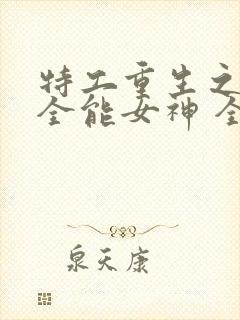 特工重生之
全能女神 全
泉天康